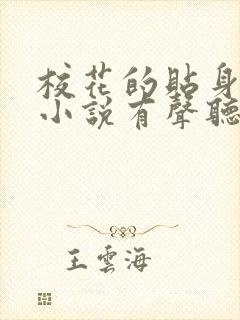 校花的貼身
小說有聲聽
王雲海